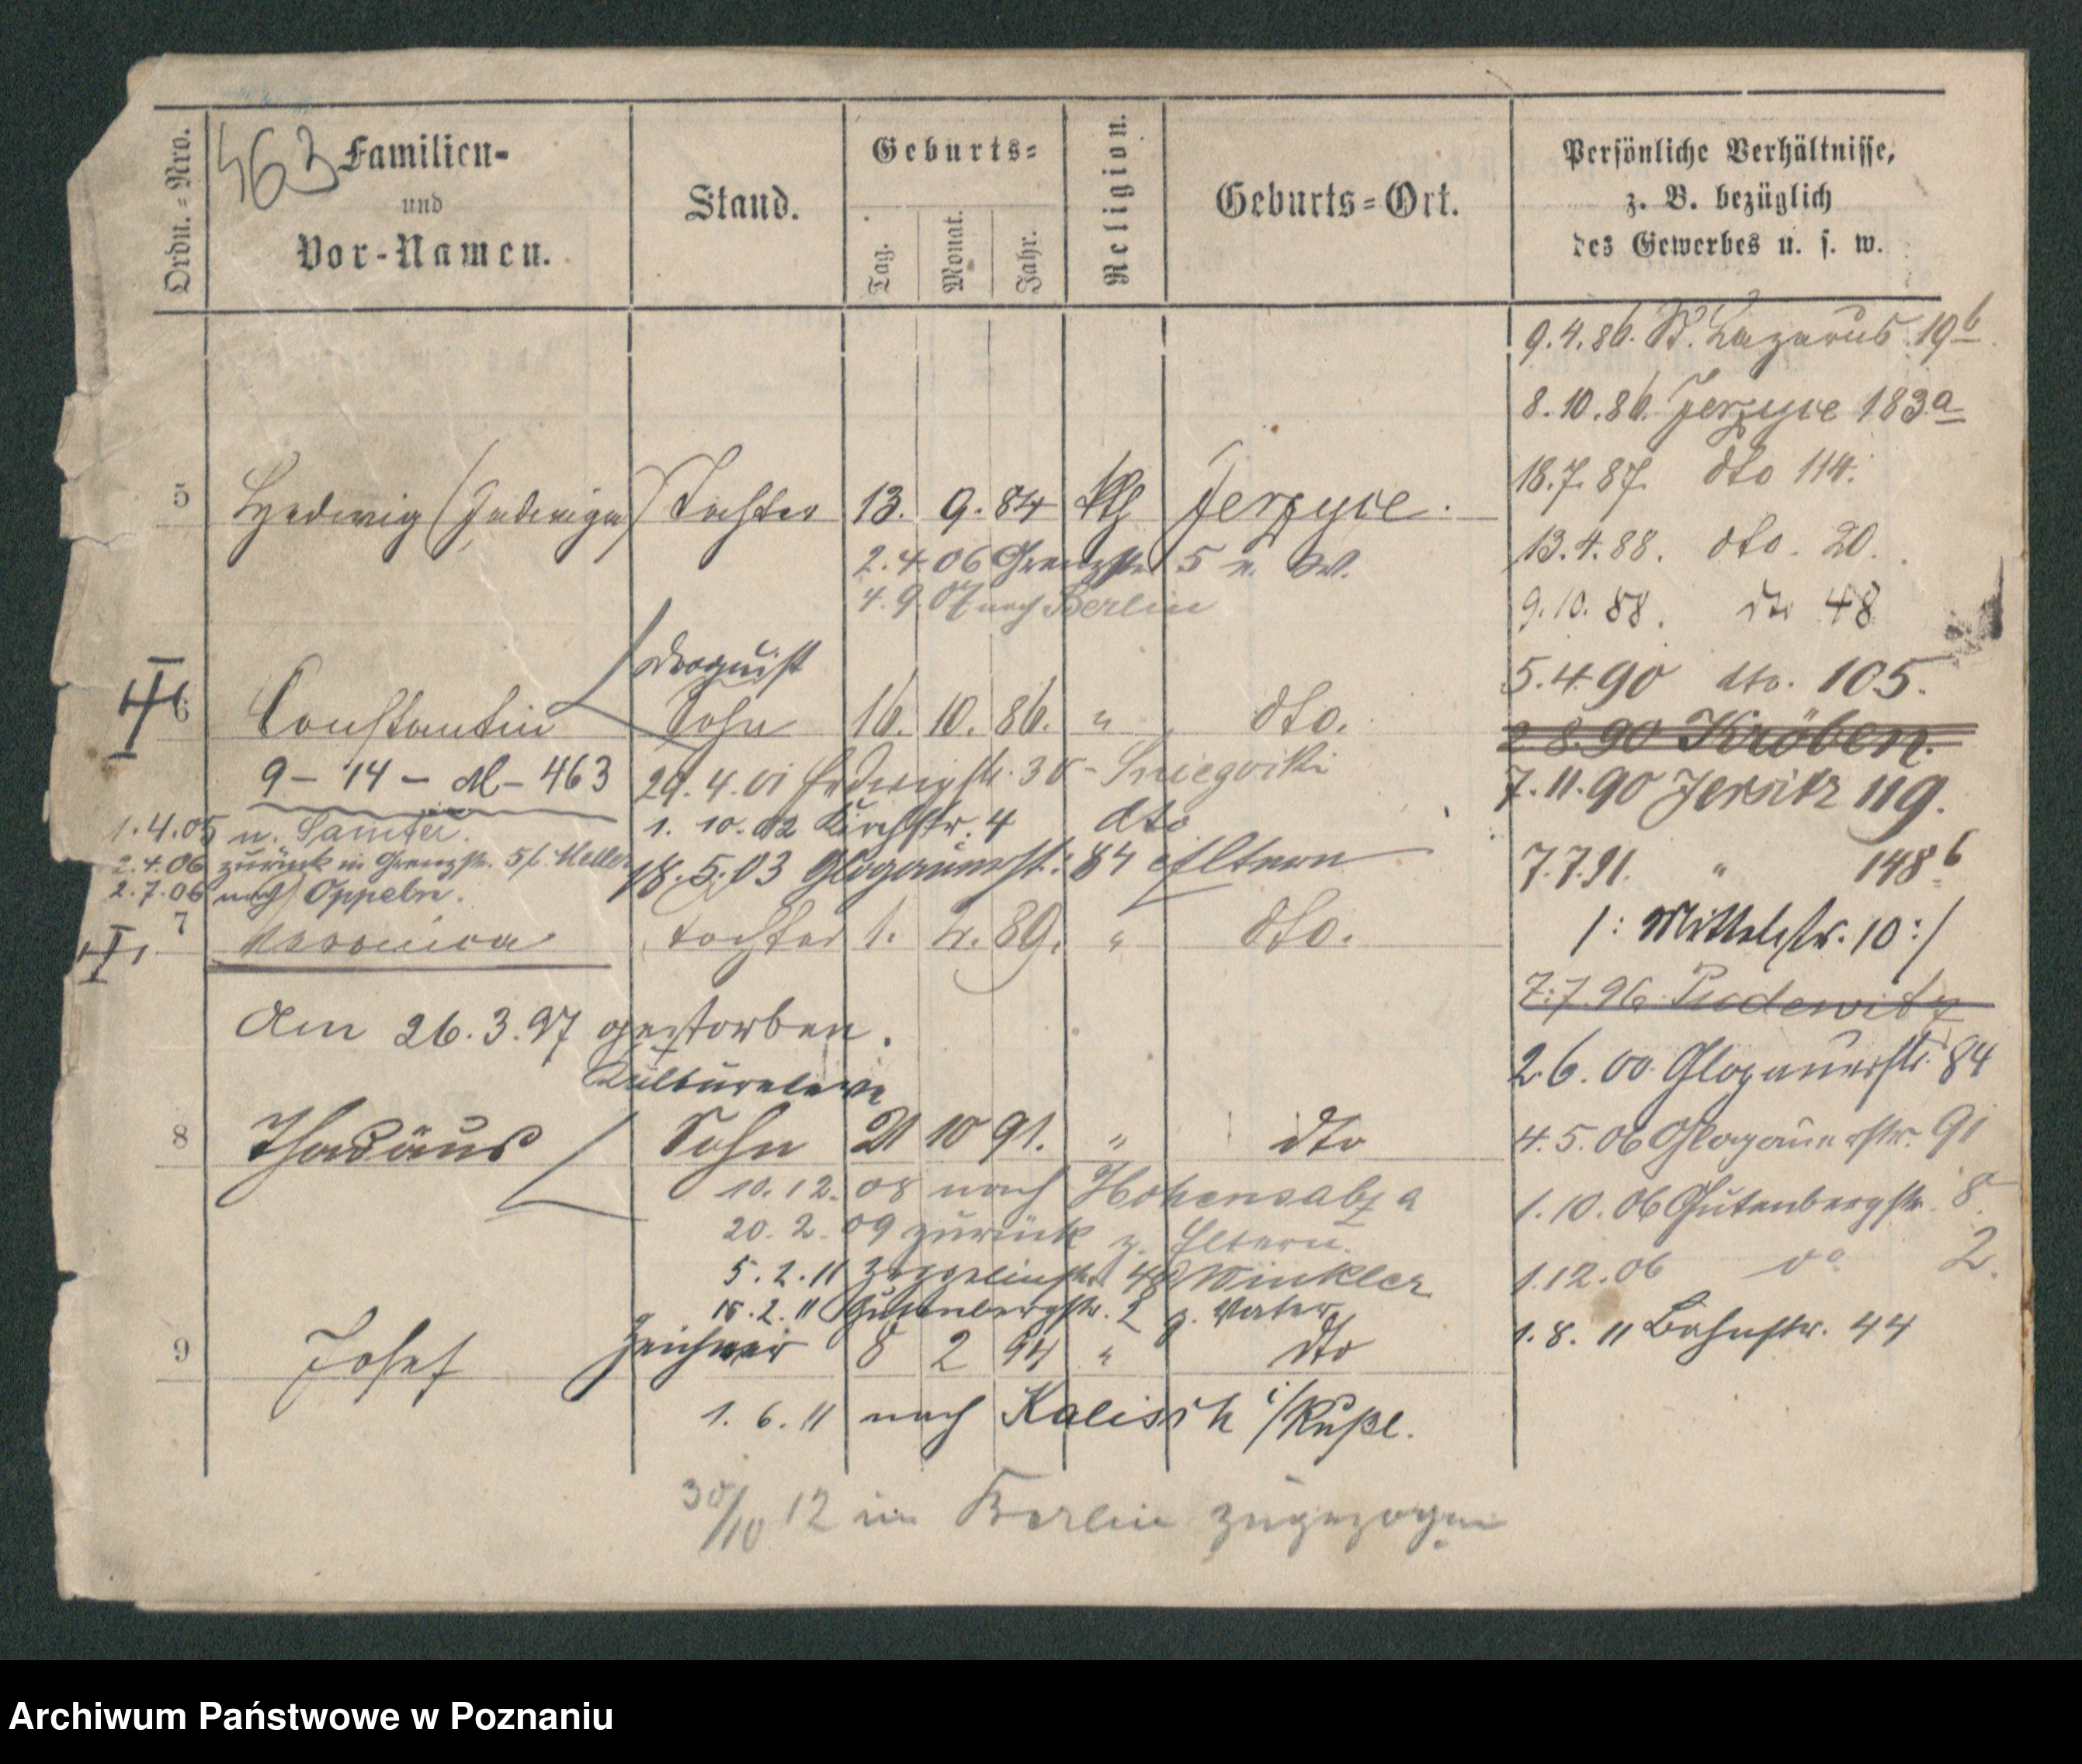 463
Ordn.-Nro.
Familien-
und
Vor-Namen.
Stand.
Geburts-
Tag.
Monat.
Jahr.
Religion.
Geburts-Ort.
Persönliche Verhältnisse,
z. B. bezüglich
des Gewerbes u. s. w.
9.4.86. St. Lazarus 19b
8.10.86. Jerzyce 183a
18.7.87. dto 114.
13.4.88. dto. 20.
9.10.88. dto 48
5.4.90 dto. 105.
2.8.90 Kröben.
7.11.90 Jersitz 119.
7.7.91. " 148b
/: Mittelstr. 10 :/
7.7.96. Pudewitz
2.6.00. Glogauerstr. 84
4.5.06 Glogauerstr. 91
1.10.06 Gutenbergstr. 8.
1.12.06 do 2.
1.8.11 Bahnstr. 44
5 Hedwig (Jadwiga) Tochter 13. 9. 84 kth Jerzyce.
2.4.06 Grenzstr. 5 n. W.
4.9.07 nach Berlin
Droguist
6 Constantin Sohn 16. 10. 86. " dto.
9 – 14 – M – 463
29.4.01 Hedwigstr. 30 - Sniegocki
1.10.02 Kirchstr. 4 dto
18.5.03 Glogauerstr. 84 Eltern
1.4.05 n. Samter.
2.4.06 zurück in Grenzstr. 5 b. Heller
2.7.06 nach Oppeln.
7 Veronica Tochter 1. 2. 89. " dto.
Am 26.3.97 gestorben.
Kultureleve
8 Thadäus Sohn 21 10 91. " dto
10.12.08 nach Hohensalza
20.2.09 zurück z. Eltern.
5.2.11 Zeppelinstr. 48 Winkler
15.2.11 Gutenbergstr. 2 z. Vater
9 Josef Zeichner 8 2 94 " dto
1.6.11 nach Kalisch i/Rußl.
30/10 12 in Berlin zugezogen
Archiwum Państwowe w Poznaniu